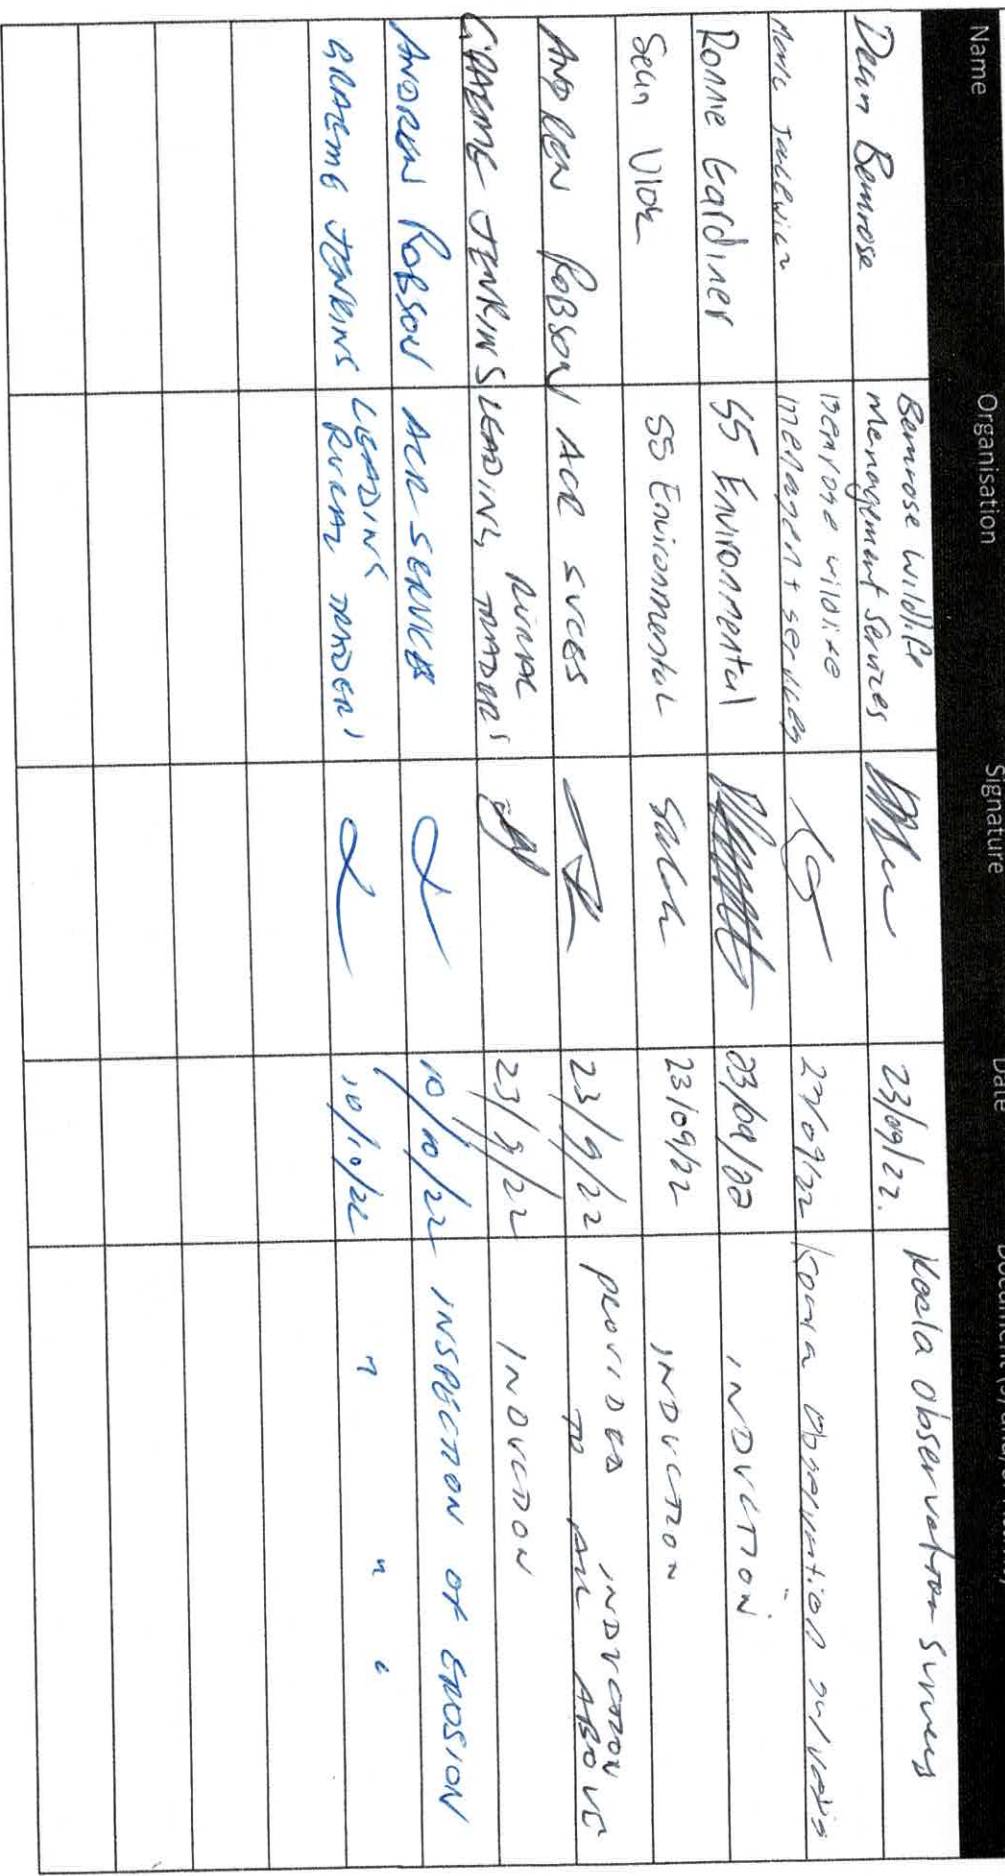 Name Organisation Signature Date
Dean Bemrose Bemrose Wildlife Management Services 23/09/22. Koala Observation Surveys
Bemrose wildlife management services 23/09/22 Koala Observation surveys
Ronnie Gardiner SS Environmental 23/09/22 INDUCTION
Sean Vlok SS Environmental 23/09/22 INDUCTION
ANDREW ROBSON ACR SVCES 23/9/22 PROVIDED INDUCTION TO ALL ABOVE
GRAEME JENKINS LEADING RURAL TRADERS 23/9/22 INDUCTION
ANDREW ROBSON ACR SERVICES 10/10/22 INSPECTION OF EROSION
GRAEME JENKINS LEADING RURAL TRADERS 10/10/22 " " "